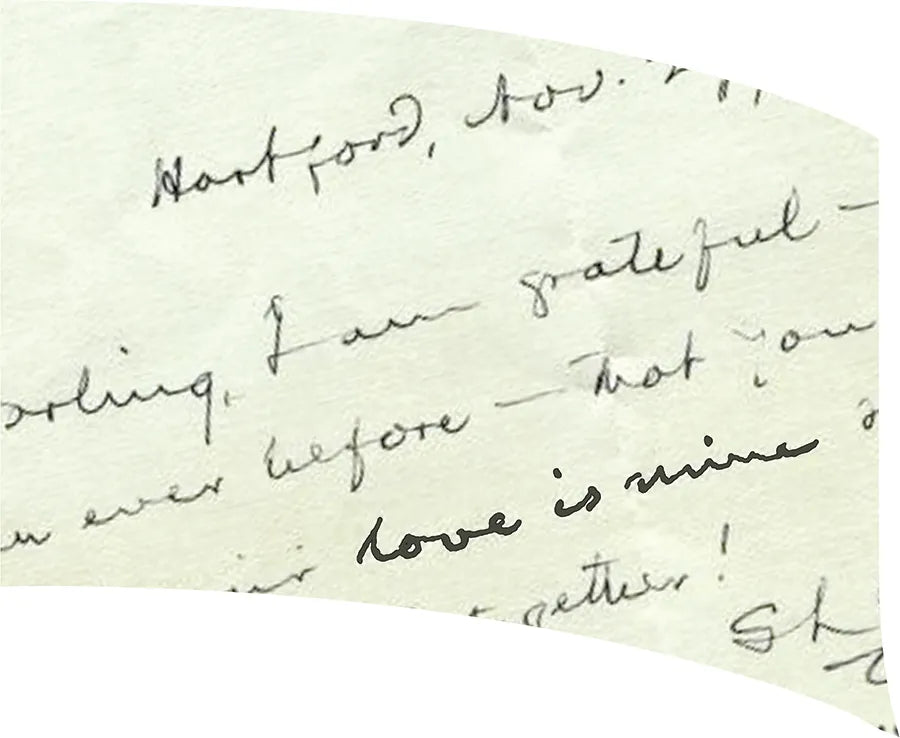 Hartford, Nov.
arling, I am grateful —
ever before — that you
love is mine
gether!